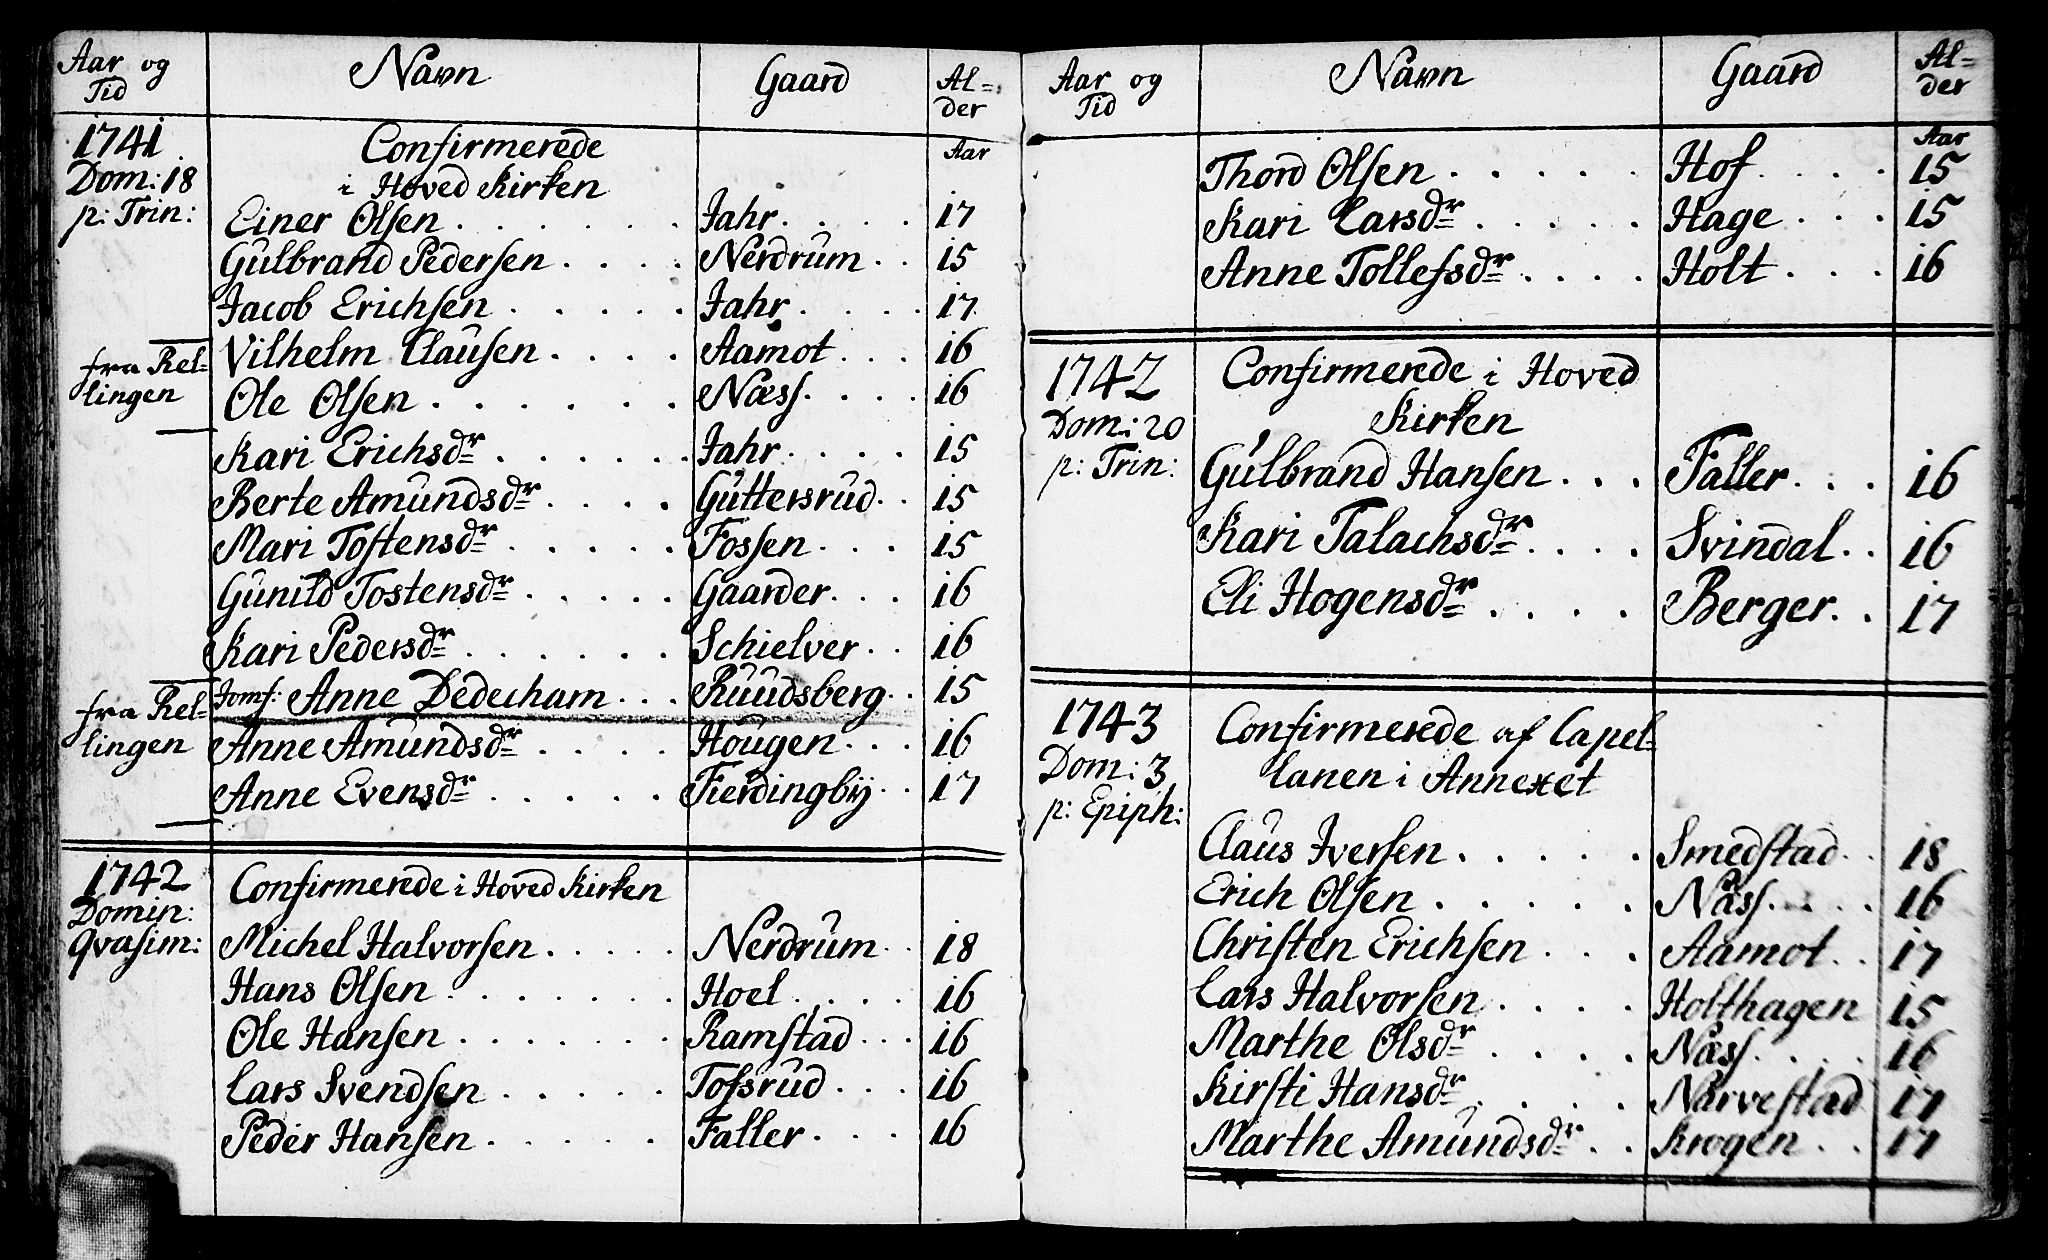 Aar og Tid | Navn | Gaard | Al=der
1741 | Confirmerede | | Aar
Dom: 18 | i Hoved Kirken
p: Trin: | Einer Olsen . . . . . . | Jahr. . . . | 17
Gulbrand Pedersen . . . . | Nerdrum . . | 15
Jacob Erichsen . . . . . | Jahr . . . . | 17
fra Rel= | Vilhelm Clausen . . . . | Aamot . . . | 16
lingen | Ole Olsen . . . . . . | Næss. . . . | 16
Kari Erichsdr . . . . . . | Jahr. . . . | 15
Berte Amundsdr . . . . | Guttersrud . . | 15
Mari Tostensdr . . . . . | Fossen . . . | 15
Gunild Tostensdr . . . . . | Gaarder. . . | 16
Kari Pedersdr . . . . . . | Schielver . . | 16
fra Rel= | Jomf: Anne Dedecham . . . | Ruudsberg . . | 15
lingen | Anne Amundsdr . . . . | Hougen . . . | 16
Anne Evensdr . . . . . | Fierdingbÿ . . | 17
1742 | Confirmerede i Hoved Kirken
Domin:
Qvasim: | Michel Halvorsen . . . . . | Nerdrum . . | 18
Hans Olsen . . . . . . . | Hoel . . . . | 16
Ole Hansen . . . . . . | Ramstad . . . | 16
Lars Svendsen . . . . . | Tofsrud . . . | 16
Peder Hansen . . . . . | Faller . . . | 16
Aar og Tid | Navn | Gaard | Al=der
Aar
Thord Olsen . . . . . | Hof . . . . | 15
Kari Larsdr . . . . . | Hage . . . | 15
Anne Tollefsdr . . . . | Holt . . . | 16
1742 | Confirmerede i Hoved
Dom: 20 | Kirken
p: Trin: | Gulbrand Hansen . . . | Faller . . . | 16
Kari Talachsdr . . . . | Svindal . . | 16
Eli Hogensdr . . . . | Berger . . | 17
1743 | Confirmerede af Capel=
Dom: 3 | lanen i Annexet
p: Epiph:
Claus Iversen . . . . . | Smedstad . . | 18
Erich Olsen . . . . . | Næss. . . . | 16
Christen Erichsen . . . | Aamot . . | 17
Lars Halvorsen . . . . | Holthagen | 15
Marthe Olsdr . . . . | Næss. . . . | 16
Kirsti Hansdr . . . . | Narvestad | 17
Marthe Amundsdr . . | Krogen . . | 17